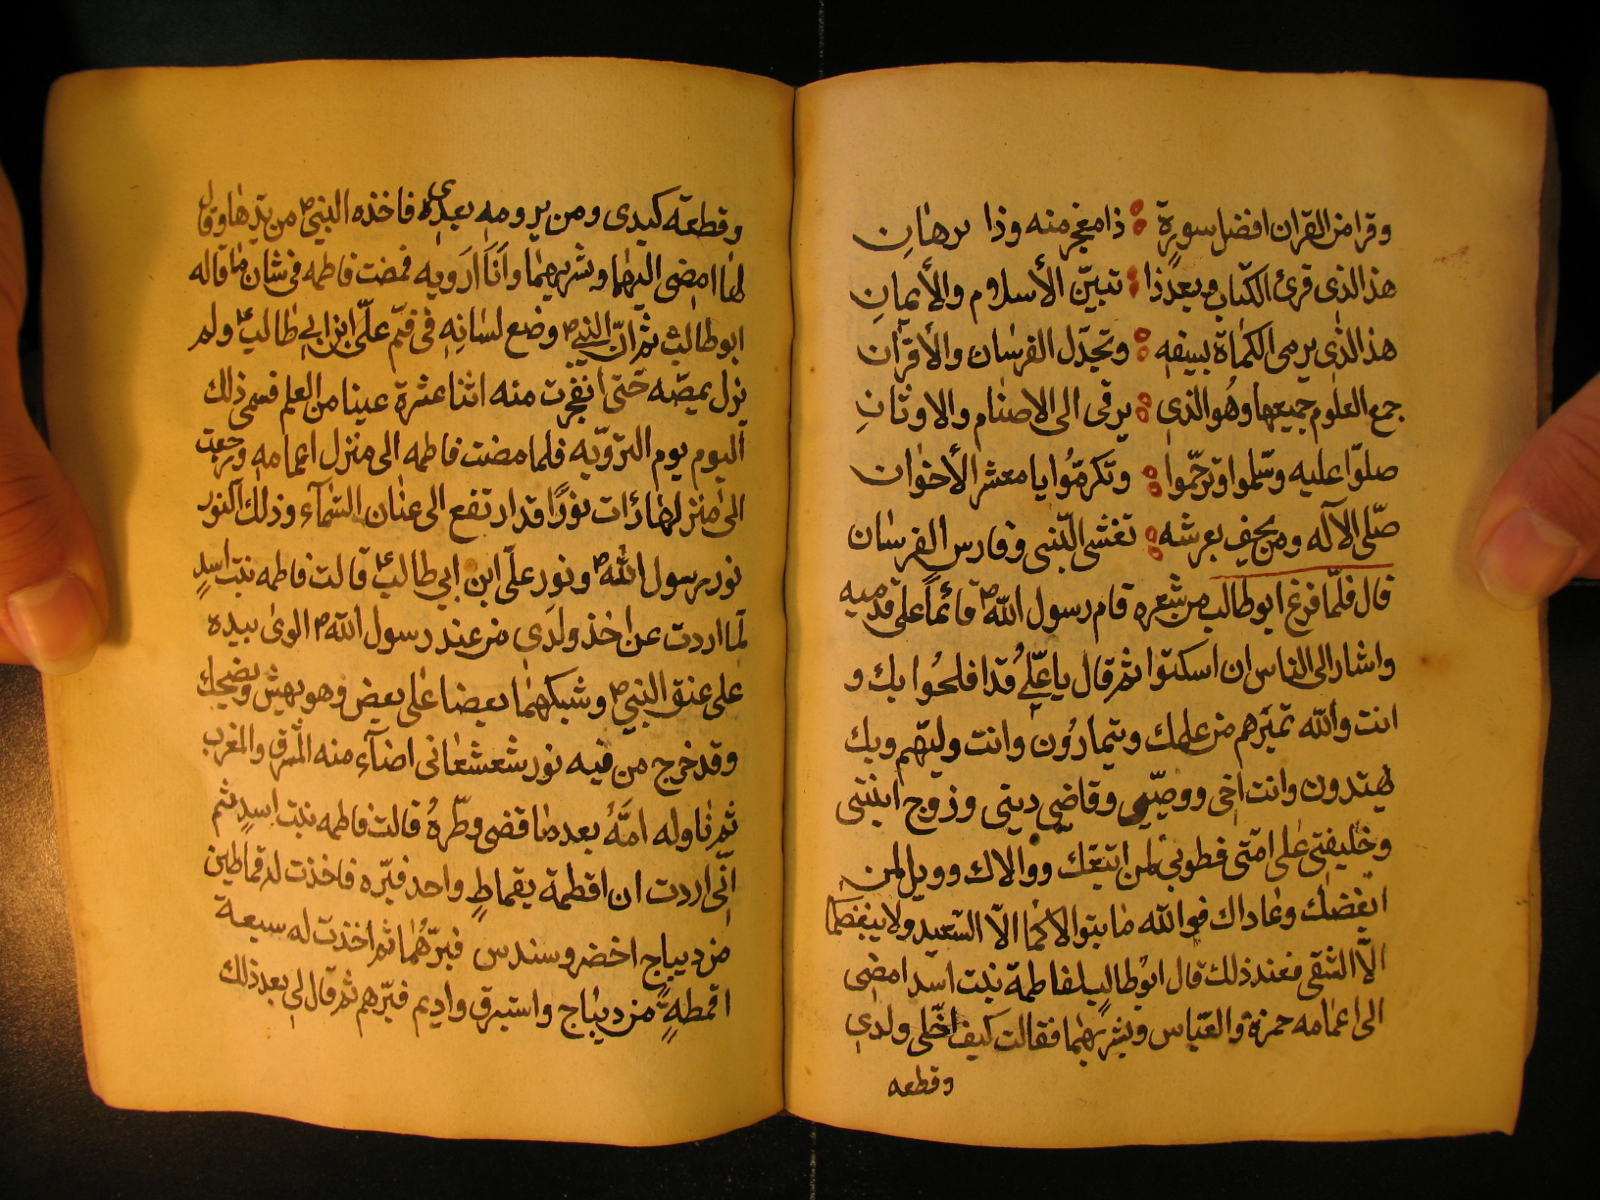 وقرا من القران افضل سورة ذا معجز منه وذا برهان
هذا الذى قرئ الكتاب وبعد ذا تبيّن الأسلام والأيمان
هذا الذى يرمى الكماة بسيفه وتجدّل الفرسان والأقران
جمع العلوم جميعها وهو الذى يرقى الى الاصنام والاوثان
صلوّا عليه وسّلموا وترحّموا وتكرمّوا يا معشر الأخوان
صلّى الاله ومن يحف بعرشه تغشى النّبى وفارس الفرسان
قال فلمّا فرغ ابو طالب من شعره قام رسول الله ص قائماً على قدميه
واشار الى الناس ان اسكتوا ثم قال يا علّى قد افلحوا بك و
انت والله تميرهم من علمك ويتمارون وانت وليّهم وبك
يهتدون وانت اخى ووصيّى وقاضى دينى وزوج ابنتى
وخليفتى على امتى فطوبى لمن اتبعّك ووالاك وويل لمن
ابغضك وعاداك فوالله ما يتوالاكما الاّ السّعيد ولا يبغضكما
الاّ الشّقى فعند ذلك قال ابو طالب لفاطمة بنت اسد امضى
الى اعمامه حمزة والعبّاس وبشريهما فقالت كيف اخّلى ولدى
وقطعه
وقطعة كبدى ومن يرويه بعدى فاخذه النبى ص من يدها وقال
لها امضى اليهما وبشريهما وانا ارويه فمضت فاطمه فى شان ما قاله
ابو طالب ثم انّ النبى ص وضع لسانه فى فمّ علّى ابن ابى طالب ع ولم
يزل يمصّه حتى انفجرت منه اثنا عشرة عينا من العلم فسمى ذلك
اليوم يوم الترويّه فلما مضت فاطمه الى منزل اعمامه ورجعت
الى منزلها رات نورًا قد ارتفع الى عنان السّمآء وذلك النور
نور رسول الله ص ونور علّى ابن ابى طالب ع قالت فاطمه بنت اسد
لمّا اردت عن اخذ ولدى من عند رسول الله ص الوى بيده
على عنق النبى ص وشبكهما بعضا على بعض وهو يهش ويضحك
وقد خرج من فيه نور شعشعانى اضآء منه المشرق والمغرب
ثم ناوله امّهُ بعد ما قضى وطّرهُ قالت فاطمه بنت اسد ثم
انّى اردت ان اقطمة بقماط واحد فبرّه فاخذت له قماطين
من ديباج اخضر وسندس فبرّهما ثم اخذت له سبعة
اقمطة من ديباج واستبرق واديم فبرّهم ثم قال لى بعد ذلك